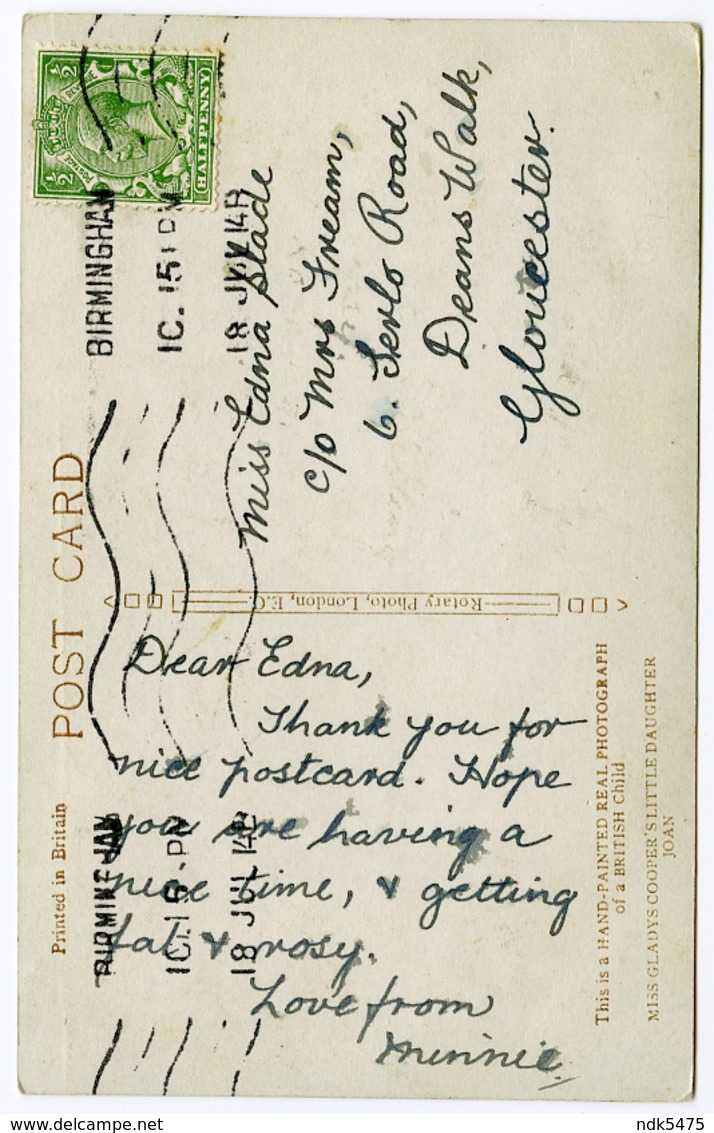 POST CARD
Printed in Britain
½ ½
POSTAGE
REVENUE
HALFPENNY
BIRMINGHAM
18 JUL 14
BIRMINGHAM
18 JUL 14
Miss Edna Slade
c/o Mrs Fream,
6. Serlo Road,
Deans Walk,
Gloucester.
Rotary Photo, London, E.C.
Dear Edna,
Thank you for
nice postcard. Hope
you are having a
nice time, & getting
fat & rosy.
Love from
Minnie
This is a HAND-PAINTED REAL PHOTOGRAPH
of a BRITISH Child
MISS GLADYS COOPER'S LITTLE DAUGHTER
JOAN
ndk5475